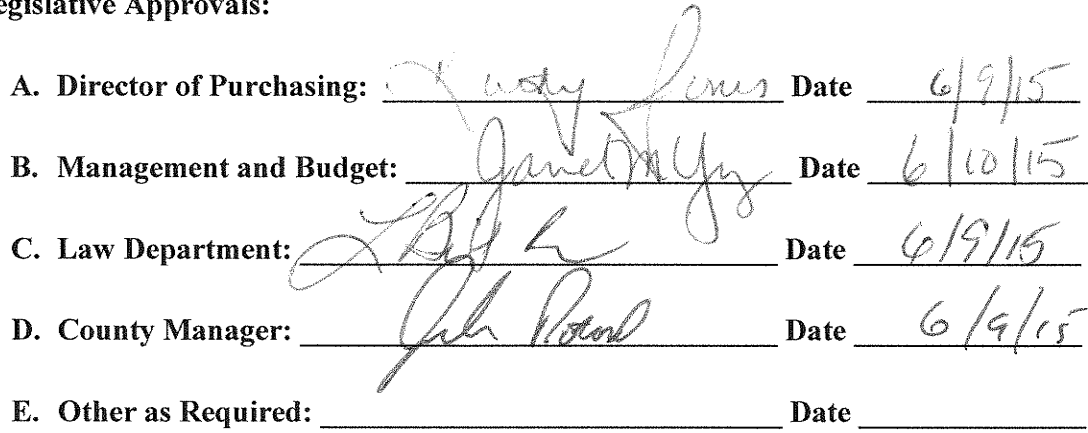 egislative Approvals:
A. Director of Purchasing: Date 6/9/15
B. Management and Budget: Janet M Date 6/10/15
C. Law Department: Date 6/9/15
D. County Manager: Date 6/9/15
E. Other as Required: Date